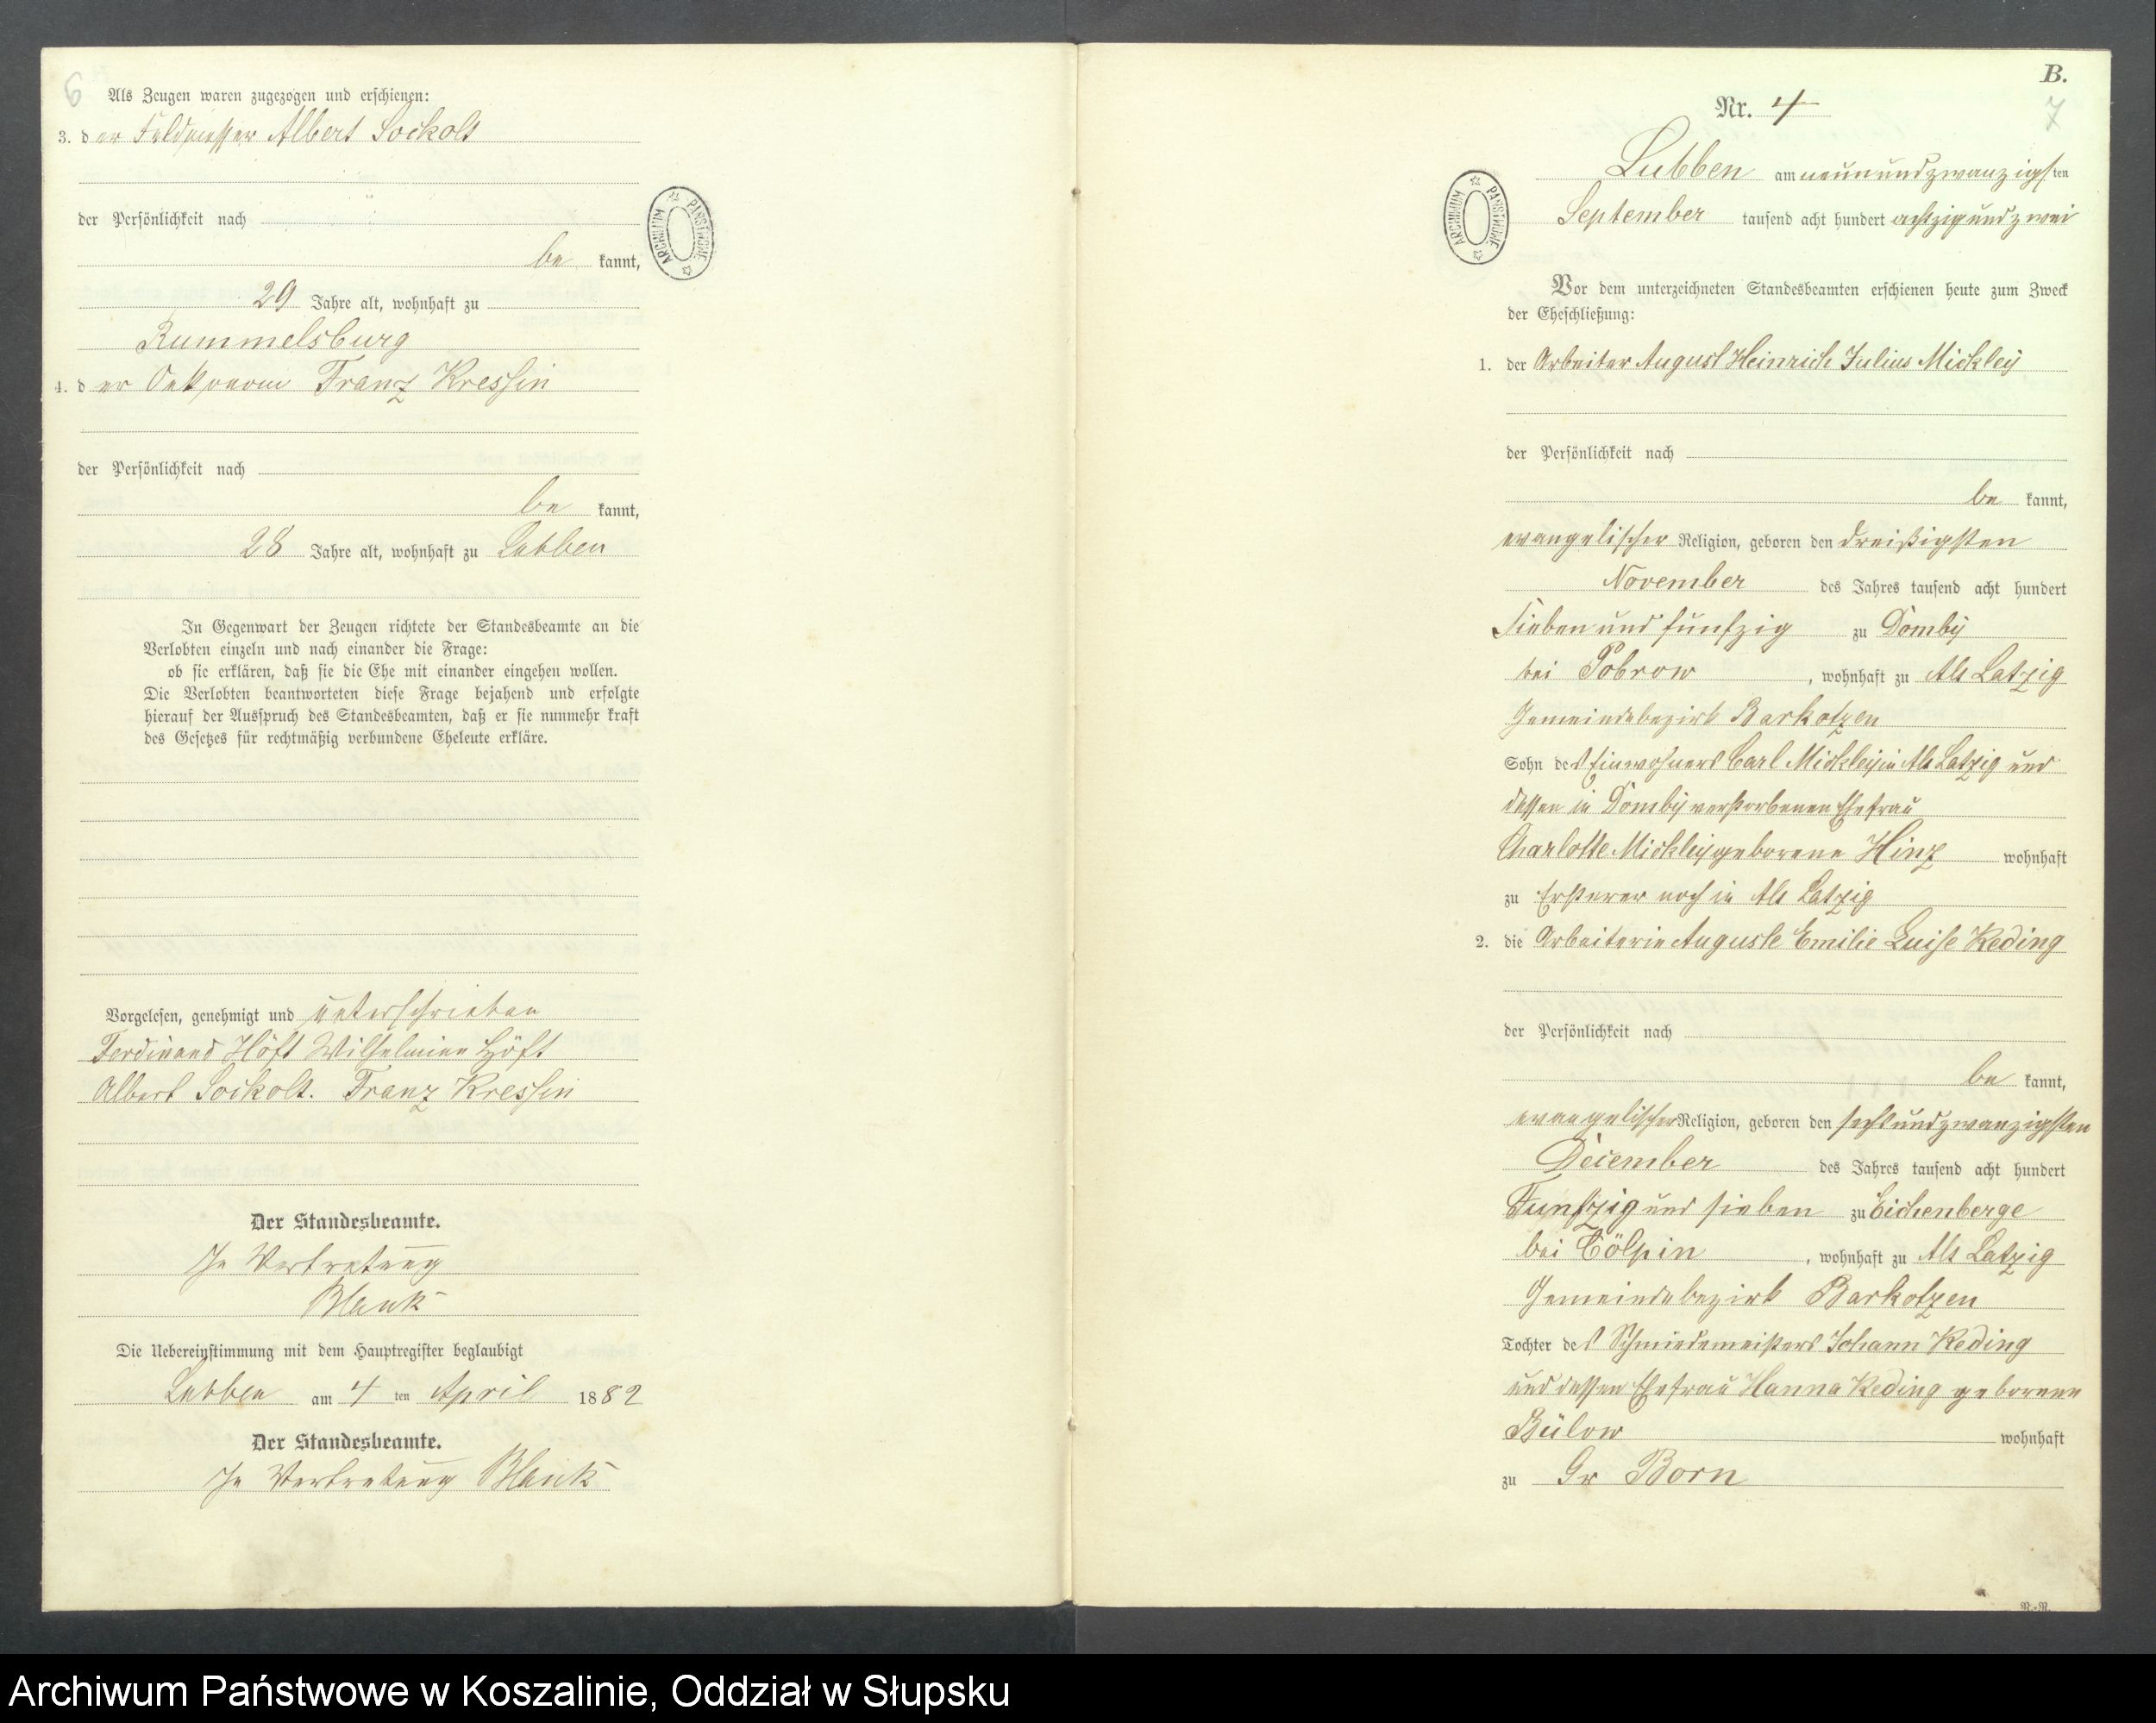 6
Als Zeugen waren zugezogen und erschienen:
3. der Feldmesser Albert Sockolt
der Persönlichkeit nach
be kannt,
29 Jahre alt, wohnhaft zu
Rummelsburg
4. der Oekonom Franz Kressin
der Persönlichkeit nach
be kannt,
28 Jahre alt, wohnhaft zu Lubben
In Gegenwart der Zeugen richtete der Standesbeamte an die
Verlobten einzeln und nach einander die Frage:
ob sie erklären, daß sie die Ehe mit einander eingehen wollen.
Die Verlobten beantworteten diese Frage bejahend und erfolgte
hierauf der Ausspruch des Standesbeamten, daß er sie nunmehr kraft
des Gesetzes für rechtmäßig verbundene Eheleute erkläre.
Vorgelesen, genehmigt und unterschrieben
Ferdinand Höft Wilhelmine Höft
Albert Sockolt. Franz Kressin
Der Standesbeamte.
In Vertretung
Blank
Die Uebereinstimmung mit dem Hauptregister beglaubigt
Lubben am 4 ten April 1882
Der Standesbeamte.
In Vertretung Blank
ARCHIWUM PAŃSTWOWE
B.
7
Nr. 4
Lubben am neunundzwanzigsten
September tausend acht hundert achtzigundzwei
ARCHIWUM PAŃSTWOWE
Vor dem unterzeichneten Standesbeamten erschienen heute zum Zweck
der Eheschließung:
1. der Arbeiter August Heinrich Julius Mickley
der Persönlichkeit nach
be kannt,
evangelischer Religion, geboren den dreißigsten
November des Jahres tausend acht hundert
Sieben und funfzig zu Domby
bei Pobrow, wohnhaft zu Alt Latzig
Gemeindebezirk Barkotzen
Sohn des Einwohners Carl Mickley in Alt Latzig und
dessen in Domby verstorbenen Ehefrau
Charlotte Mickley geborene Hinz wohnhaft
zu Ersterer noch in Alt Latzig
2. die Arbeiterin Auguste Emilie Luise Reding
der Persönlichkeit nach
be kannt,
evangelischer Religion, geboren den sechsundzwanzigsten
December des Jahres tausend acht hundert
Funfzig und sieben zu Eichenberge
bei Cölpin, wohnhaft zu Alt Latzig
Gemeindebezirk Barkotzen
Tochter des Schmiedemeisters Johann Reding
und dessen Ehefrau Hanna Reding geborene
Bülow wohnhaft
zu Gr Born
R.-R.
Archiwum Państwowe w Koszalinie, Oddział w Słupsku